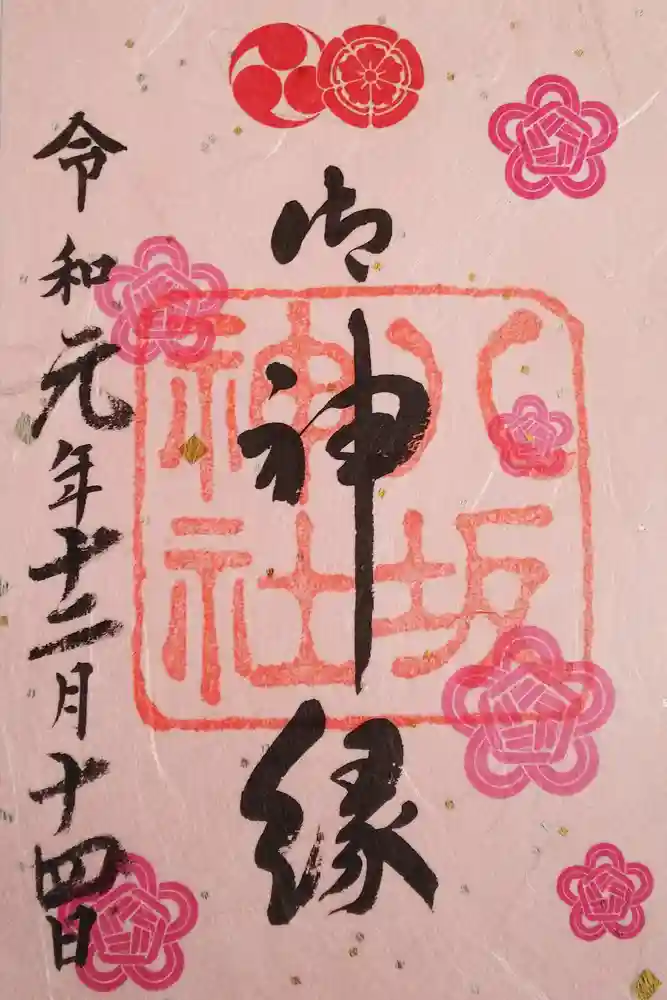 御神縁
八坂
神社
令和元年十二月十四日